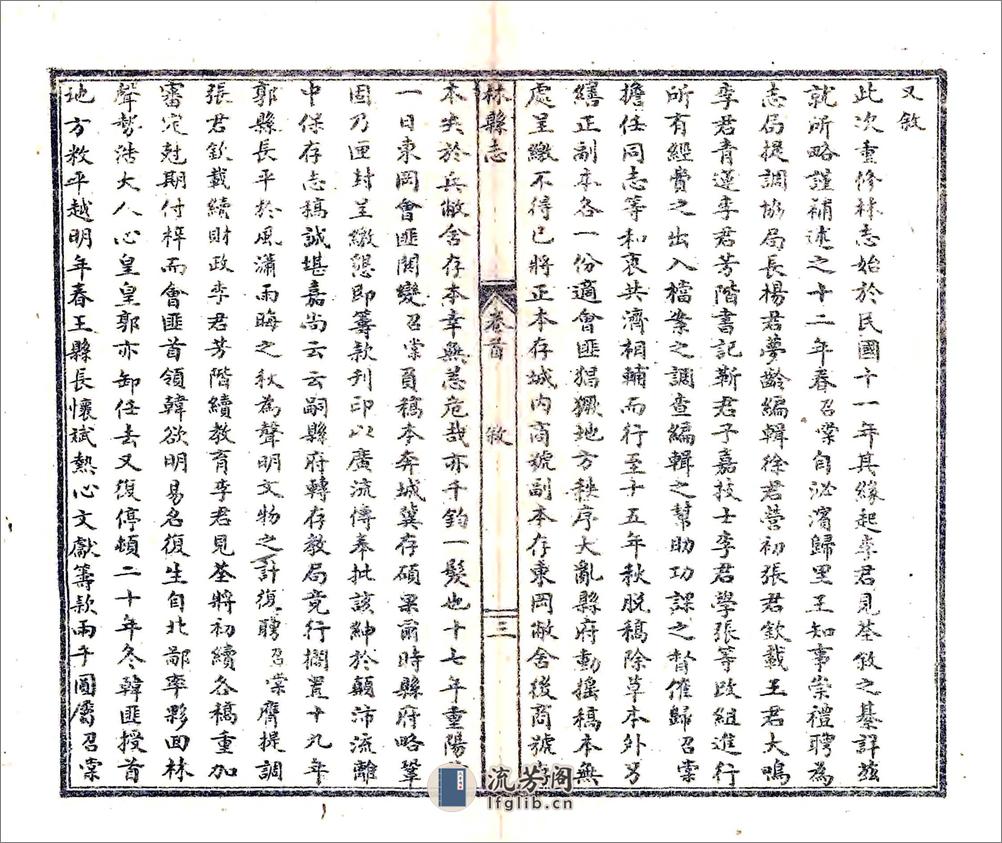 又敘
此次重修林志始於民國十一年其緣起李君見荃敘之綦詳茲
就所略謹補述之十二年春召棠自泌濱歸里王知事崇禮聘為
志局提調協局長楊君夢齡編輯徐君營初張君欽載王君大鳴
李君青蓮李君芳階書記靳君子嘉技士李君學張等改組進行
所有經費之出入檔案之調查編輯之幫助功課之督催歸召棠
擔任同志等和衷共濟相輔而行至十五年秋脫稿除草本外另
繕正副本各一份適會匪猖獗地方秩序大亂縣府動搖稿本無
處呈繳不得已將正本存城內商號副本存東岡敝舍後商號存
林縣志 卷首 敘 三
本失於兵敝舍存本幸無恙危哉亦千鈞一髮也十七年重陽
一日東岡會匪閧變召棠負稿本奔城冀存碩果爾時縣府略鞏
固乃匣封呈繳懇即籌款刊印以廣流傳奉批該紳於顛沛流離
中保存志稿誠堪嘉尚云云嗣縣府轉存教局竟行擱置十九年
郭縣長平於風瀟雨晦之秋為聲明文物之計復聘召棠膺提調
張君欽載續財政李君芳階續教育李君見荃將初續各稿重加
審定尅期付梓而會匪首領韓欲明易名復生自北鄙率夥回林
聲勢浩大人心皇皇郭亦卸任去又復停頓二十年冬韓匪授首
地方敉平越明年春王縣長懷斌熱心文獻籌款兩千圓屬召棠
流芳閣
lfglib.cn